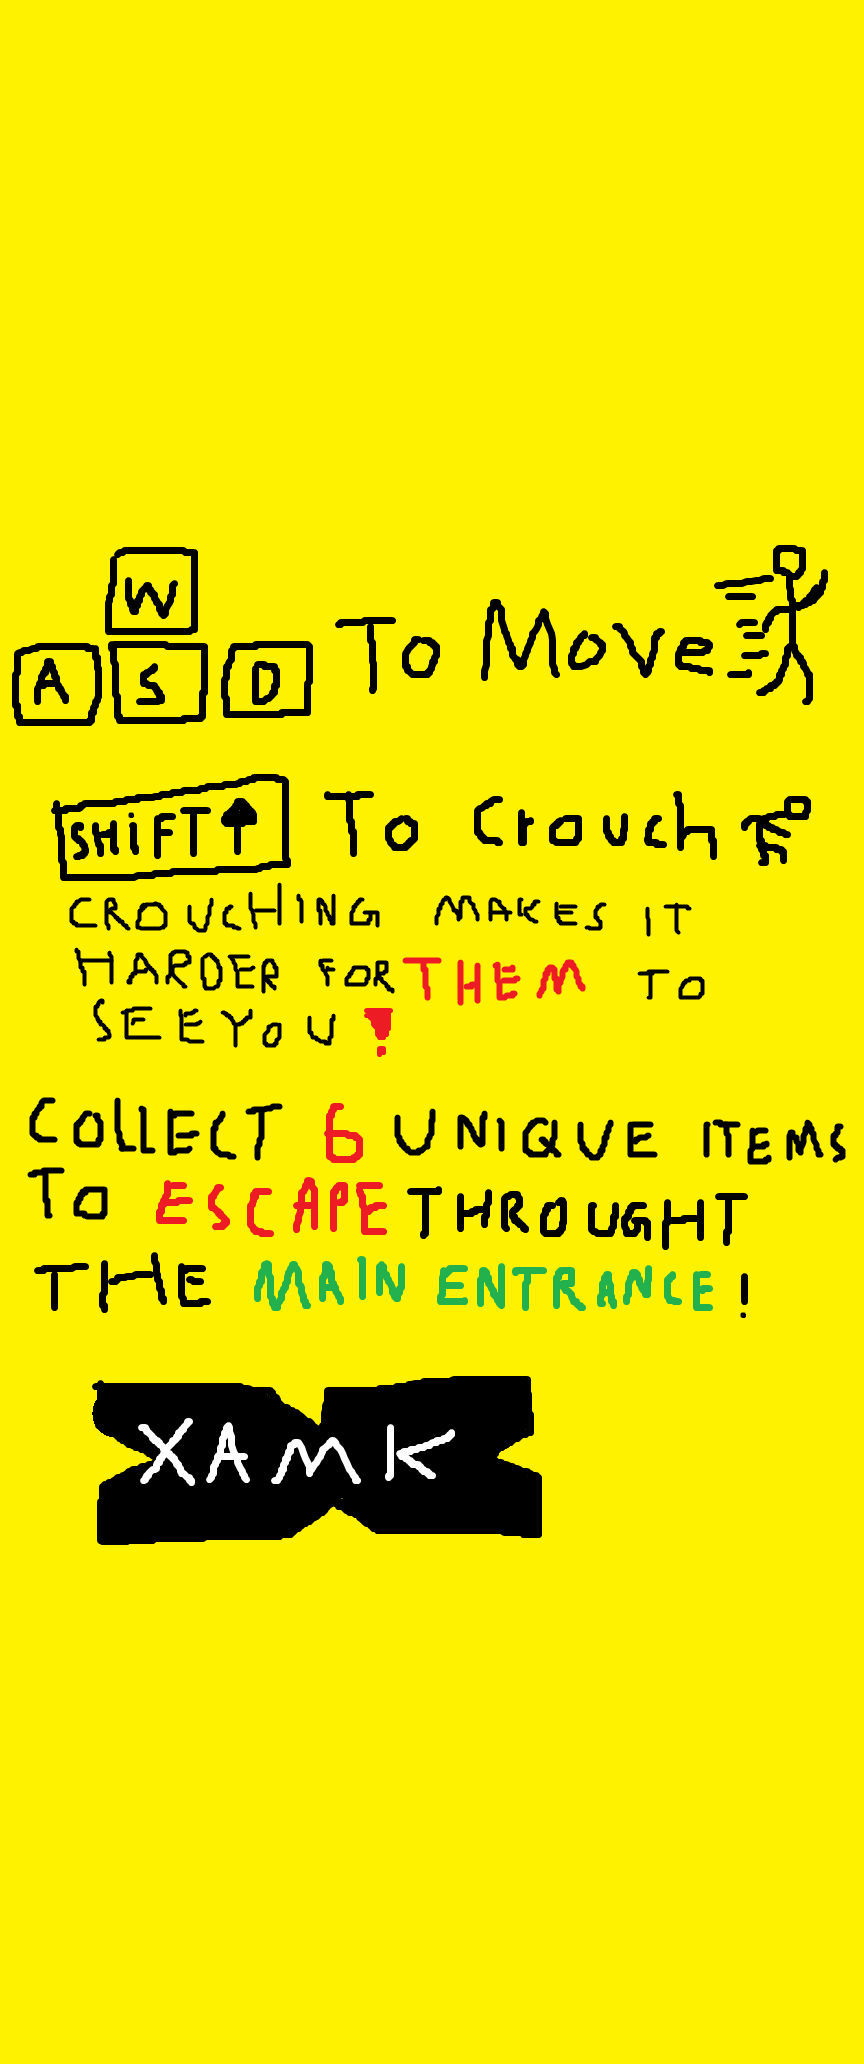 W
A S D To Move
SHiFT To Crouch
CROUCHING MAKES IT
HARDER FOR THEM TO
SEE YOU !
COLLECT 6 UNIQUE ITEMS
TO ESCAPE THROUGHT
THE MAIN ENTRANCE!
XAMK